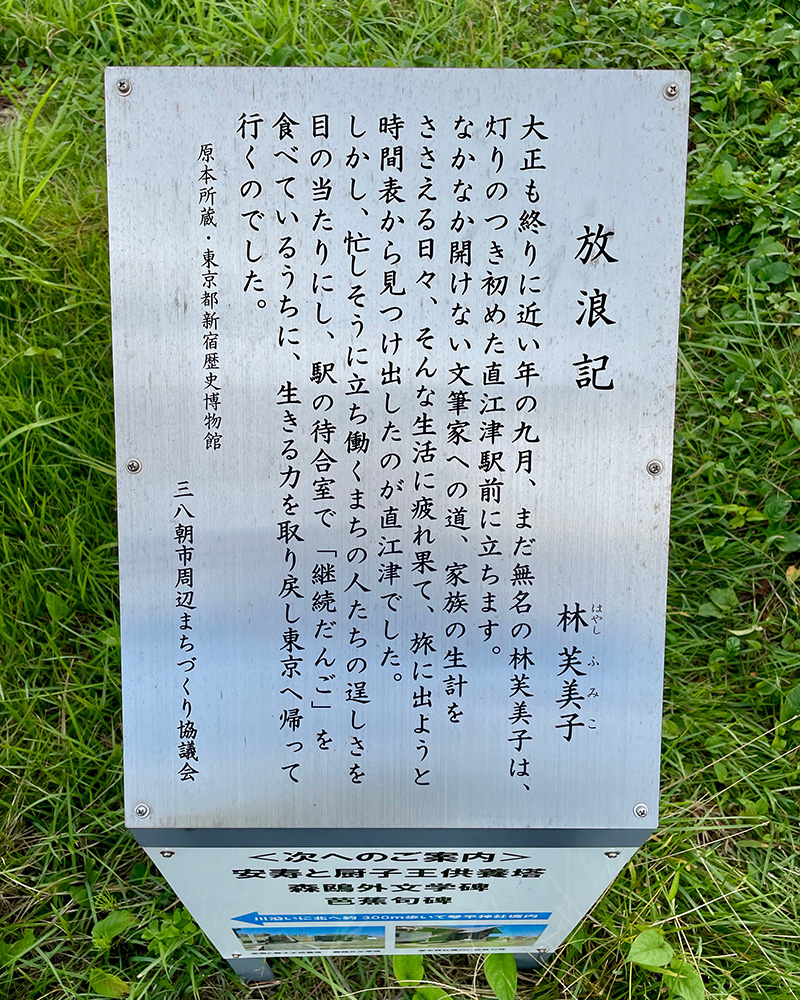 放浪記
林 芙美子
はやし ふみこ
大正も終りに近い年の九月、まだ無名の林芙美子は、
灯りのつき初めた直江津駅前に立ちます。
なかなか開けない文筆家への道、家族の生計を
ささえる日々、そんな生活に疲れ果て、旅に出ようと
時間表から見つけ出したのが直江津でした。
しかし、忙しそうに立ち働くまちの人たちの逞しさを
目の当たりにし、駅の待合室で「継続だんご」を
食べているうちに、生きる力を取り戻し東京へ帰って
行くのでした。
原本所蔵・東京都新宿歴史博物館
三八朝市周辺まちづくり協議会
＜次へのご案内＞
安寿と厨子王供養塔
森鴎外文学碑
芭蕉句碑
川沿いに北へ約300m歩いて琴平神社境内